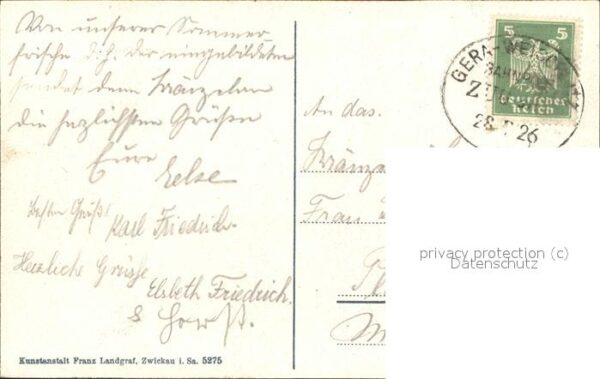 Von unserer Sommer
frische d.h. der eingebildeten
sendet dem Kränzchen
die herzlichsten Grüßen
Eure
Else
Besten Gruß!
Karl Friedrich.
Herzliche Grüsse
Elsbeth Friedrich.
& Horst.
Kunstanstalt Franz Landgraf, Zwickau i. Sa. 5275
5 5
Deutsches
Reich
GERA-WEI
BAHNPOST
28 26
An das
Kränz
Frau
privacy protection (c)
Datenschutz